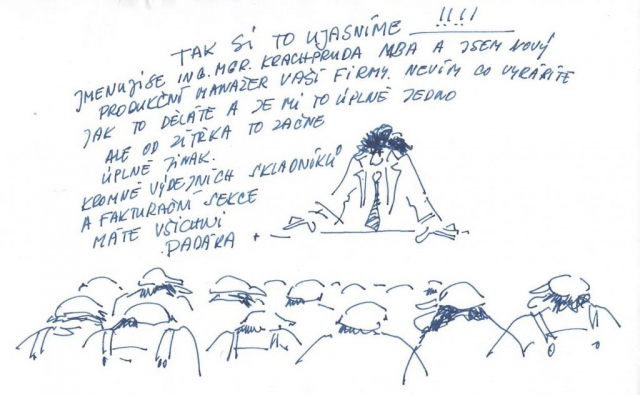 TAK SI TO UJASNÍME !!!!
JMENUJI SE ING. MGR. KRACHPRUDA MBA A JSEM NOVÝ
PRODUKČNÍ MANAŽER VAŠÍ FIRMY. NEVÍM CO VYRÁBÍTE
JAK TO DĚLÁTE A JE MI TO ÚPLNĚ JEDNO
ALE OD ZÍTŘKA TO ZAČNE
ÚPLNĚ JINAK.
KROMNĚ VÝDEJNÍCH SKLADNÍKŮ
A FAKTURAČNÍ SEKCE
MÁTE VŠICHNI
PADÁKA